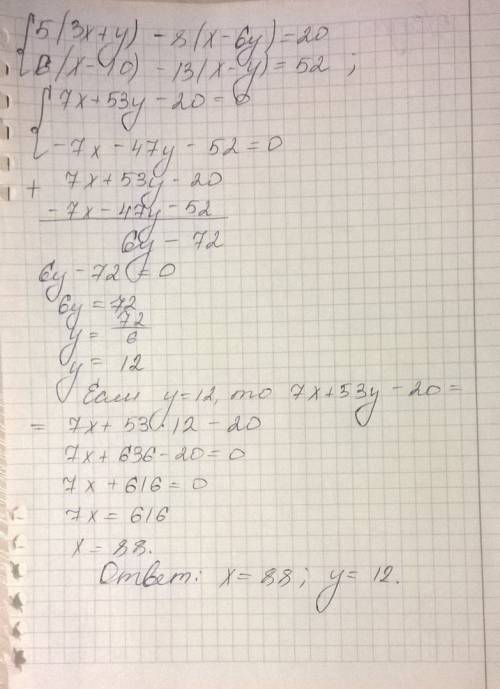 5(3x+y) - 8(x-6y) = 20
6(x-10) - 13(x-y) = 52 ;
7x+53y-20=0
-7x-47y-52=0
+ 7x+53y-20
-7x-47y-52
6y-72
6y-72=0
6y=72
y=72/6
y=12
Если y=12, то 7x+53y-20=
= 7x+53·12-20
7x+636-20=0
7x+616=0
7x=616
x=88.
Ответ: x=88; y=12.